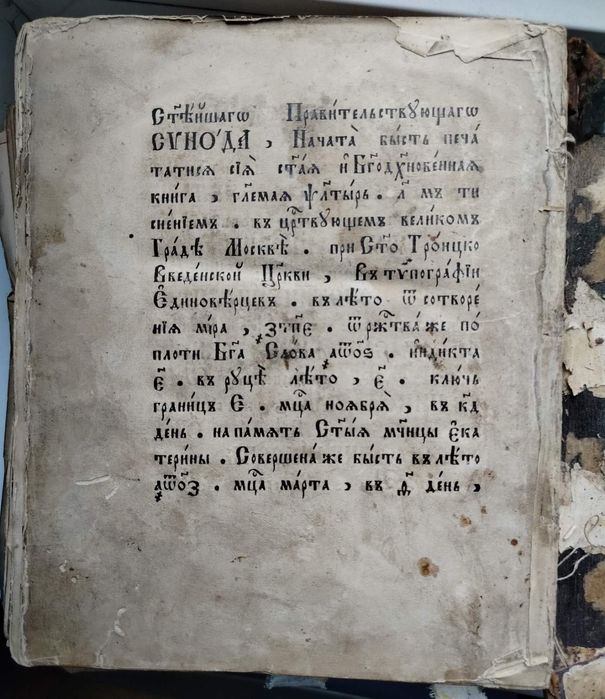 Ст҃ѣ́йшагѡ Прави́тельствꙋющагѡ
СѴНО́ДА , Начата̀ бы́сть печа́
татисѧ сїѧ̀ ст҃а́ѧ и҆ Бг҃одꙋхнове́ннаѧ
кни́га , гл҃емаѧ ѱалты́рь . л҃ мъ ти
сне́нїемъ . въ ца́рствꙋющемъ вели́комъ
Гра́дѣ Москвѣ̀ . при Ст҃о Тро́ицко
Введе́нской Цр҃кви , Въ тѷпогра́фїи
Е҆диновѣ́рцевъ . въ лѣ́то ѿ сотворе́
нїѧ мі́ра , ҂зт҃пе . ѿ ржⷭ҇тва́ же по
пло́ти Бг҃а Сло́ва ҂аѿ҃ѕ . и҆нді́кта
е҃ . въ рꙋцѣ̀ лѣ́то , е҃ . клю́чь
грани́цъ Е . мц҃а ноѧ́брѧ , въ к҃д
де́нь . на па́мѧть Ст҃ы́ѧ мч҃ницы Е҆ка
тери́ны . Соверше́на же бы́сть въ лѣ́то
҂аѿ҃з . мц҃а ма́рта , въ д҃ де́нь ,